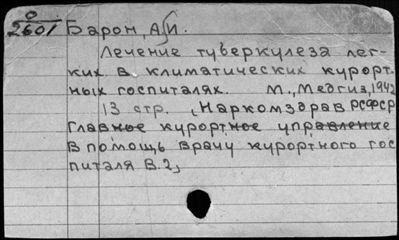 О
2601 Барон, А.И.
Лечение туберкулеза лег-
ких в климатических курорт-
ных госпиталях. М., Медгиз, 1942
13 стр. (Наркомздрав РСФСР
Главное курортное управление
В помощь врачу курортного гос
питаля В.2)